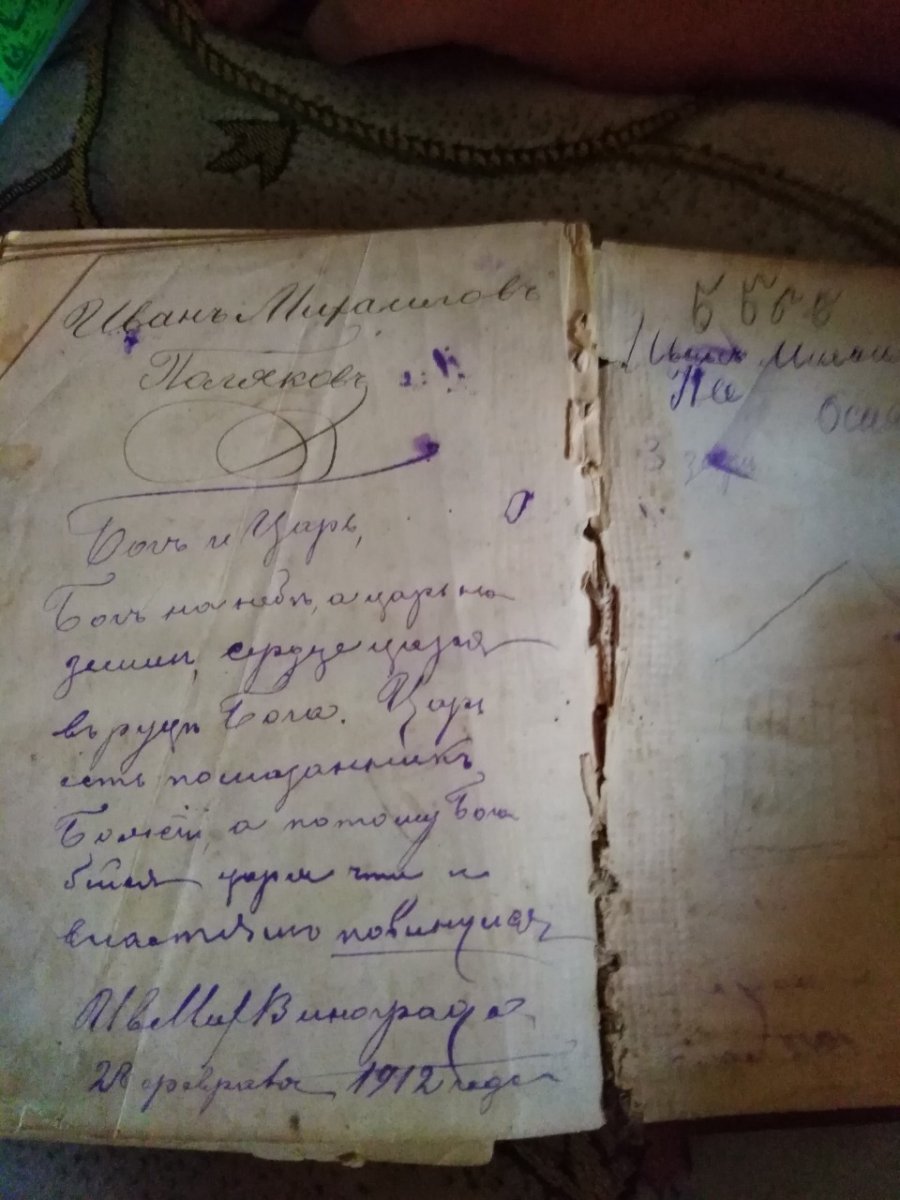 Иванъ Михаиловъ
Поляковъ
Богъ и Царь,
Богъ на небѣ, а царь на
земли, сердце царя
въ руцѣ Бога. Царь
есть помазанникъ
Божій, а потому Бога
бійся царя чти и
властямъ повинуйся
ИвМих Виноградо
28 февраля 1912 года
Б Б Б Б